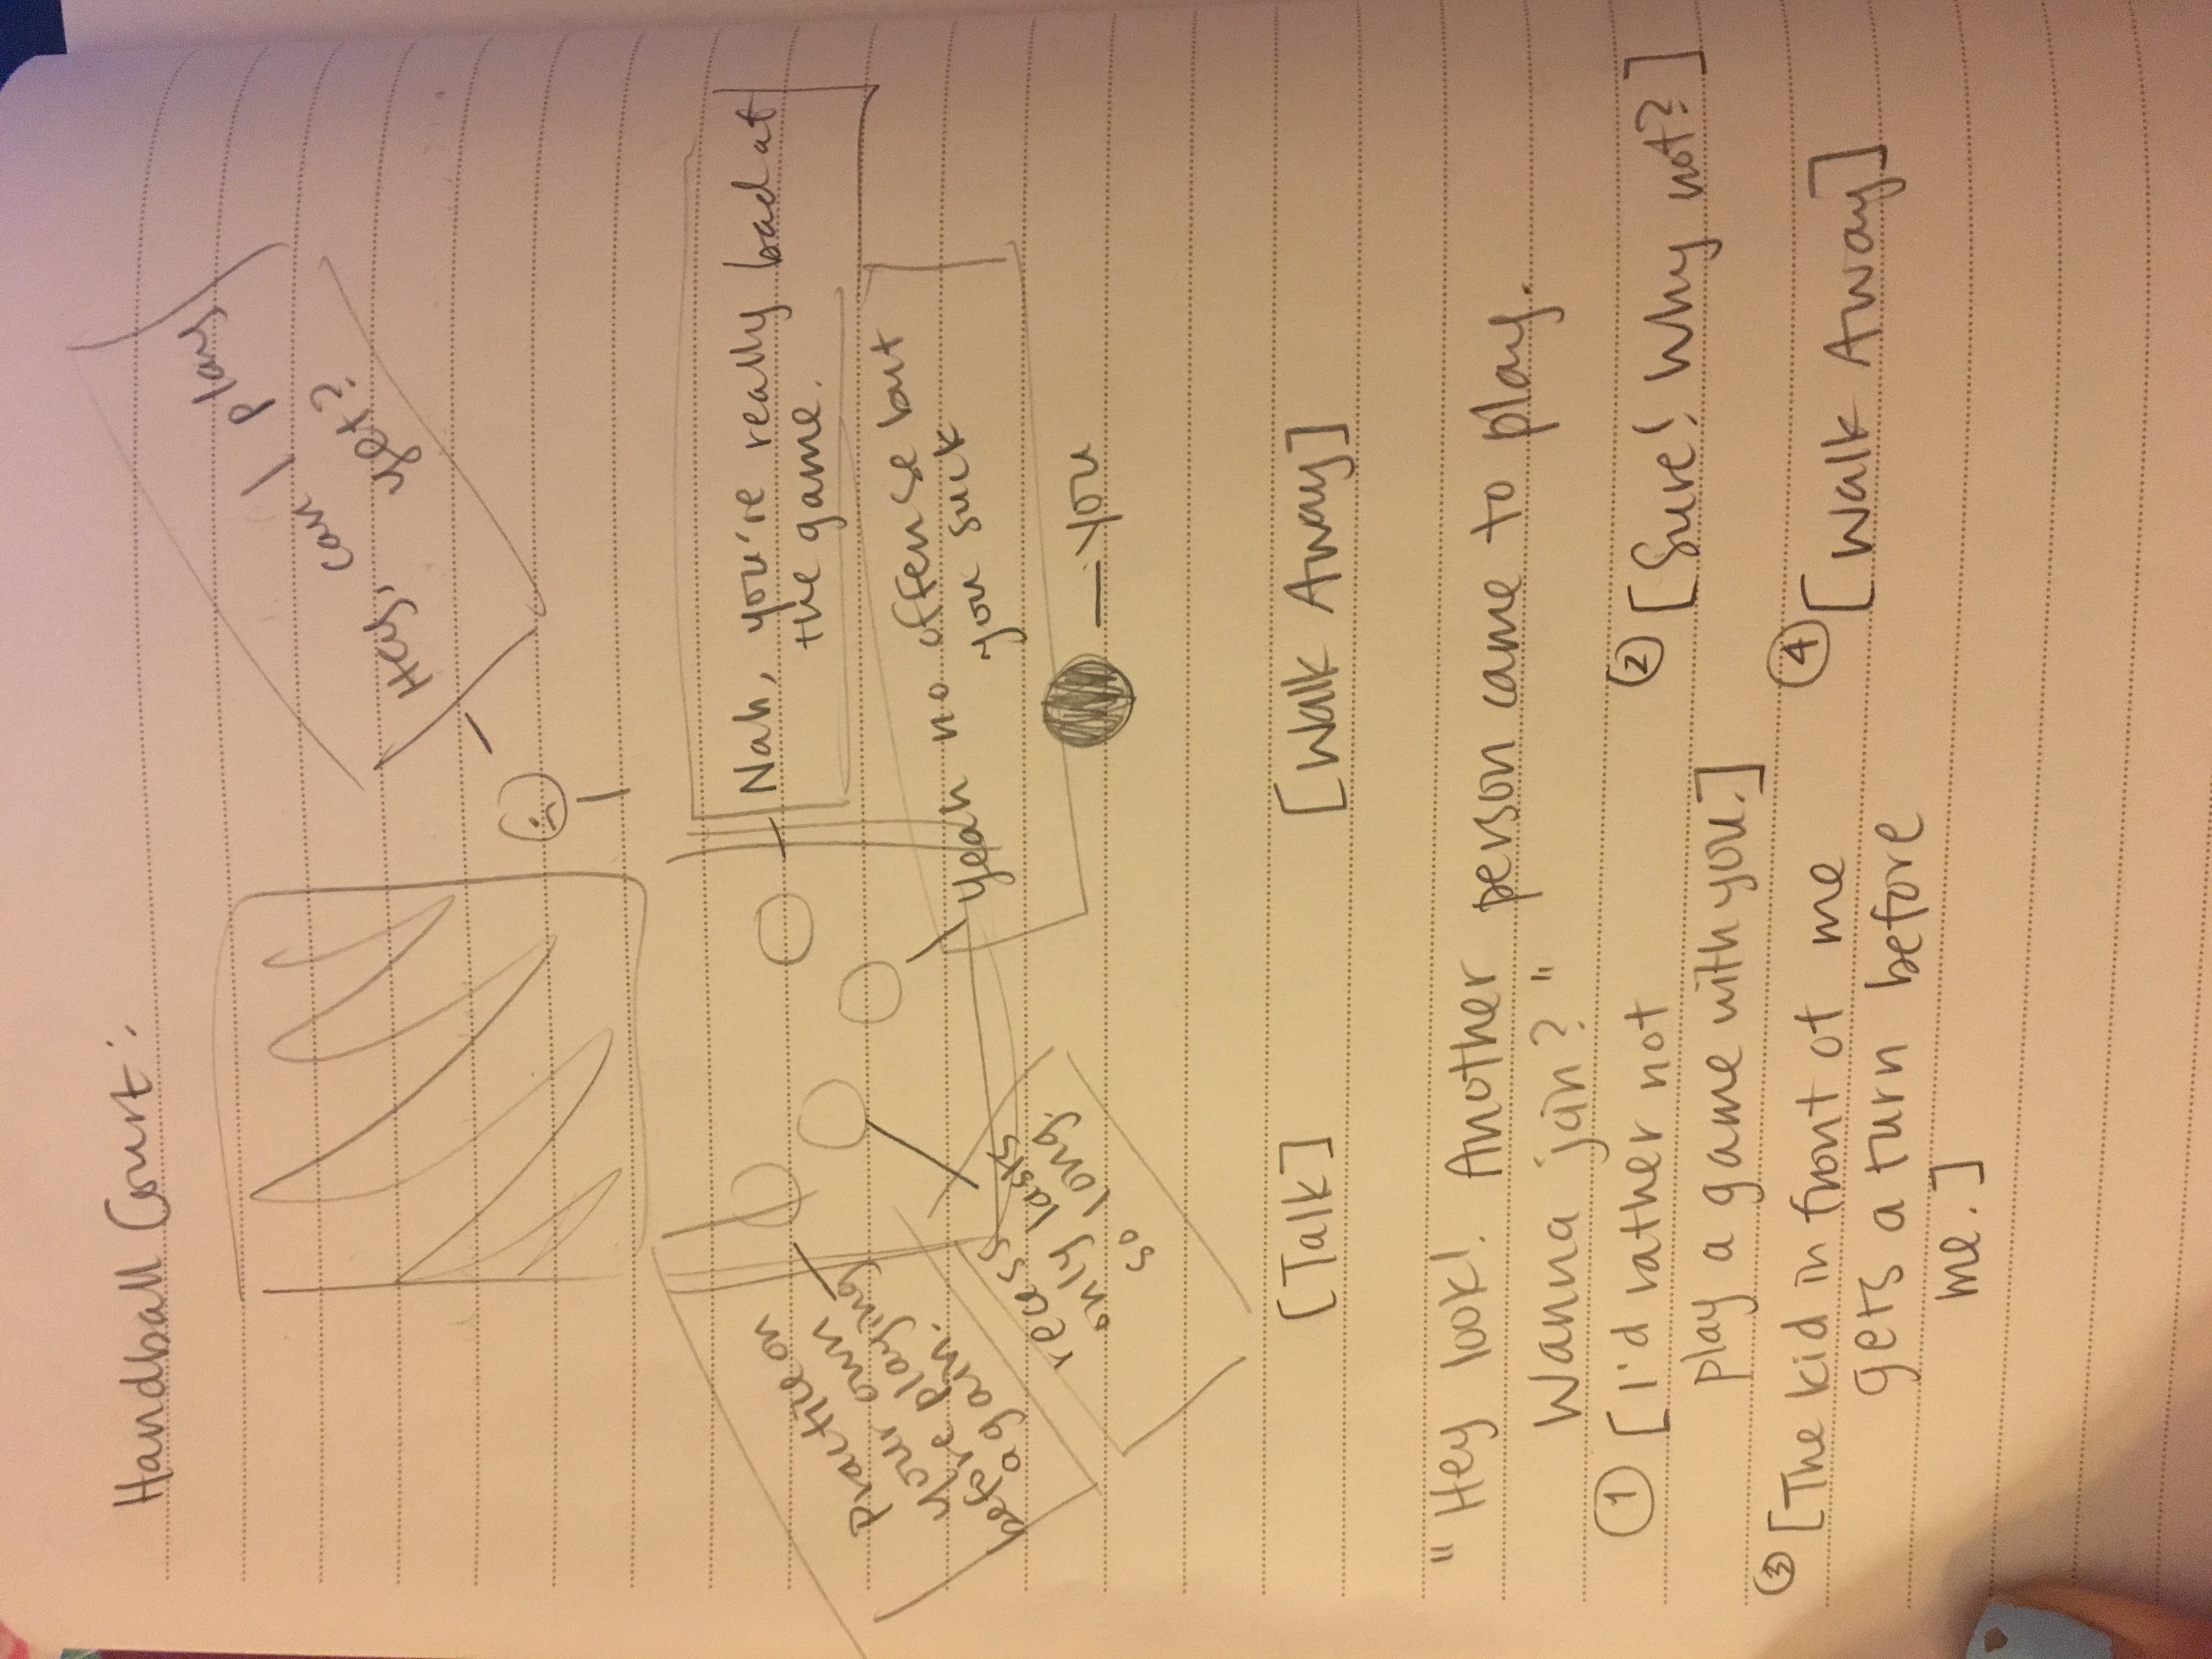 Handball Court:
Hey, can I play
yet?
Nah, you're really bad at
the game.
Practice on
your own
before playing
again.
Yeah no offense but
you suck
recess
only lasts
so long.
— you
[Talk]
[Walk Away]
"Hey look! Another person came to play.
Wanna join?"
① [I'd rather not
play a game with you.]
② [Sure! Why not?]
③ [The kid in front of me
gets a turn before
me.]
④ [Walk Away]